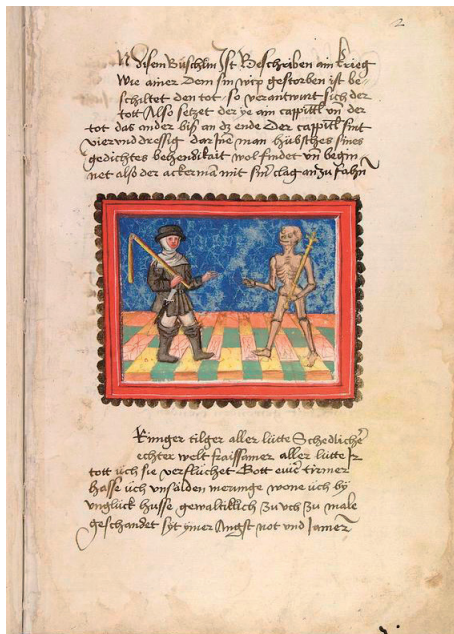 2
In disem Büschlin Ist Beschriben ain krieg
wie ainer dem sin wip gestorben ist be-
schiltet den tot so verantwurt sich der
tott Also setzet der ye ain cappittl vn̄ der
tot das ander bis an dz ende Der cappitl sint
vierunddreissig dar Inē man hübsches sines
gedichtes behendikait wol findet vn̄ begin
net also der ackermā mit sinr clag an zu fahn
Grimger tilger aller lütte Schedlicher
echter welt fraissamer aller lütte Ir
tott üch sie verflüchet Gott euwer tirmer
hasse üch vnsälden merunge wone üch by
vnglück husse gewaltiklich zu vch zu male
geschandet syt ymer Angst not vnd Jamer